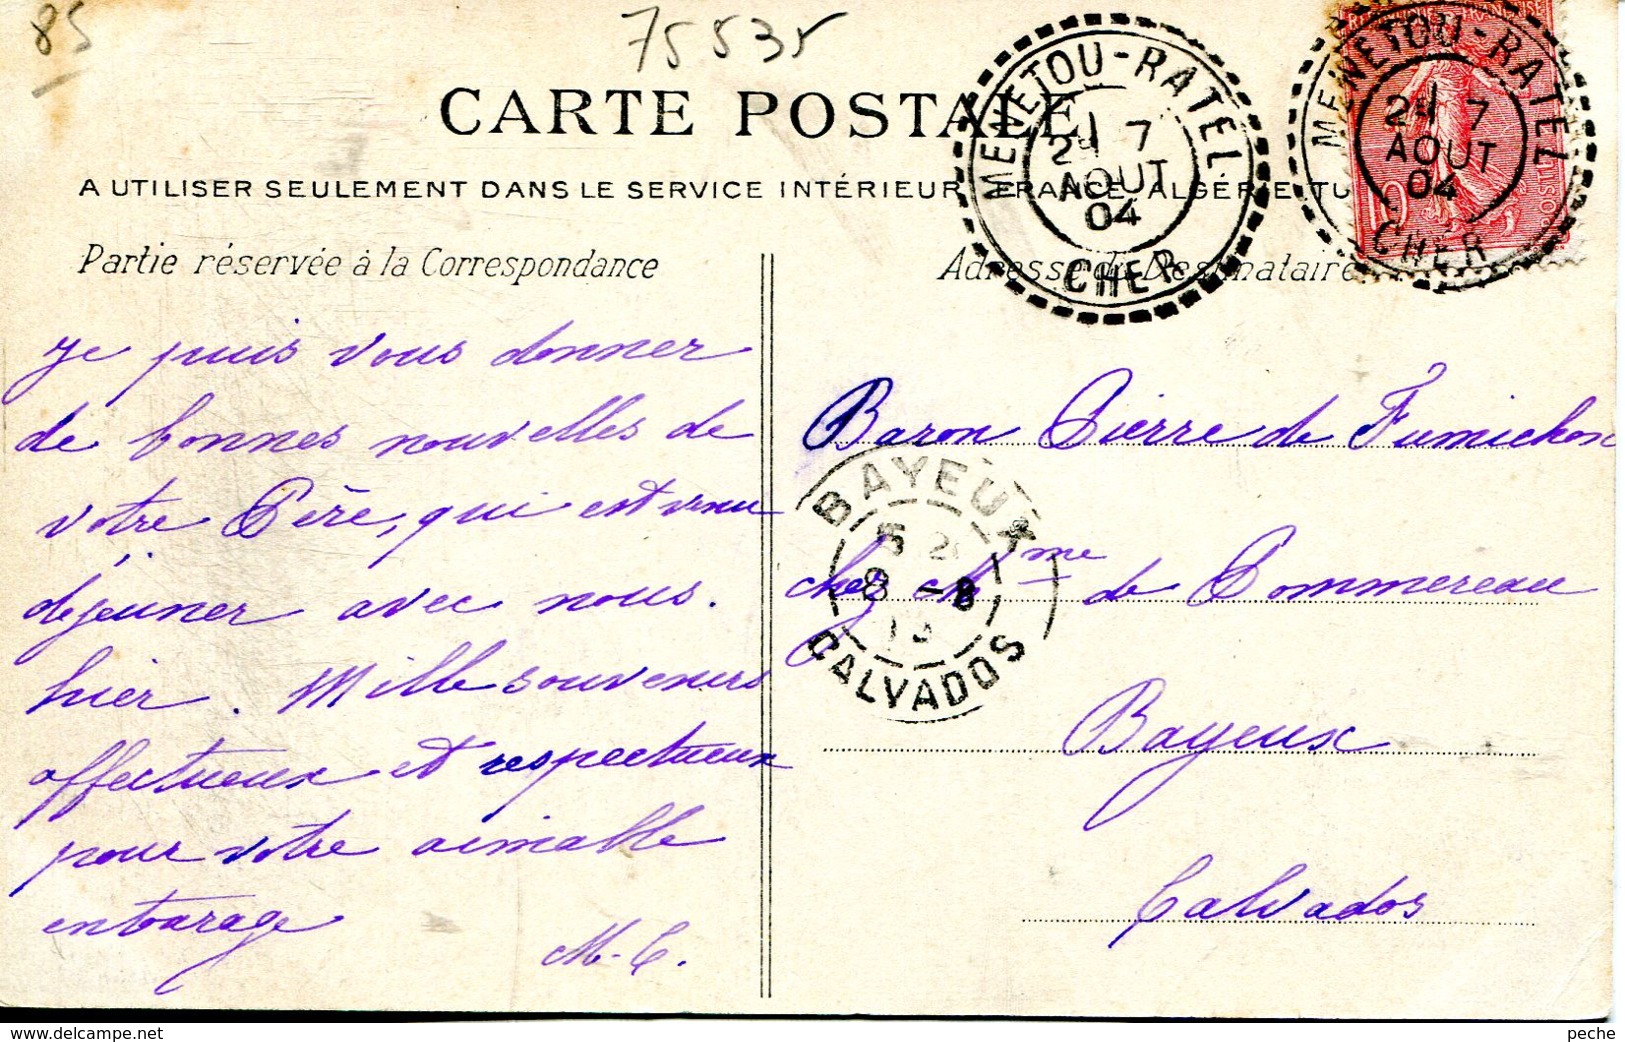 85
75535
CARTE POSTALE
A UTILISER SEULEMENT DANS LE SERVICE INTÉRIEUR, FRANCE, ALGÉRIE, TU
Partie réservée à la Correspondance
Adresse du Destinataire
MENETOU-RATEL
7
AOUT
04
CHER
MENETOU-RATEL
7
AOUT
04
CHER
10
Je puis vous donner
de bonnes nouvelles de
votre Père, qui est venu
déjeuner avec nous.
hier. Mille souvenirs
affectueux et respectueux
pour votre aimable
entourage
M. C.
Baron Pierre de Fumichon
chez Mme de Commereau
Bayeux
Calvados
BAYEUX
8 -8
CALVADOS
peche